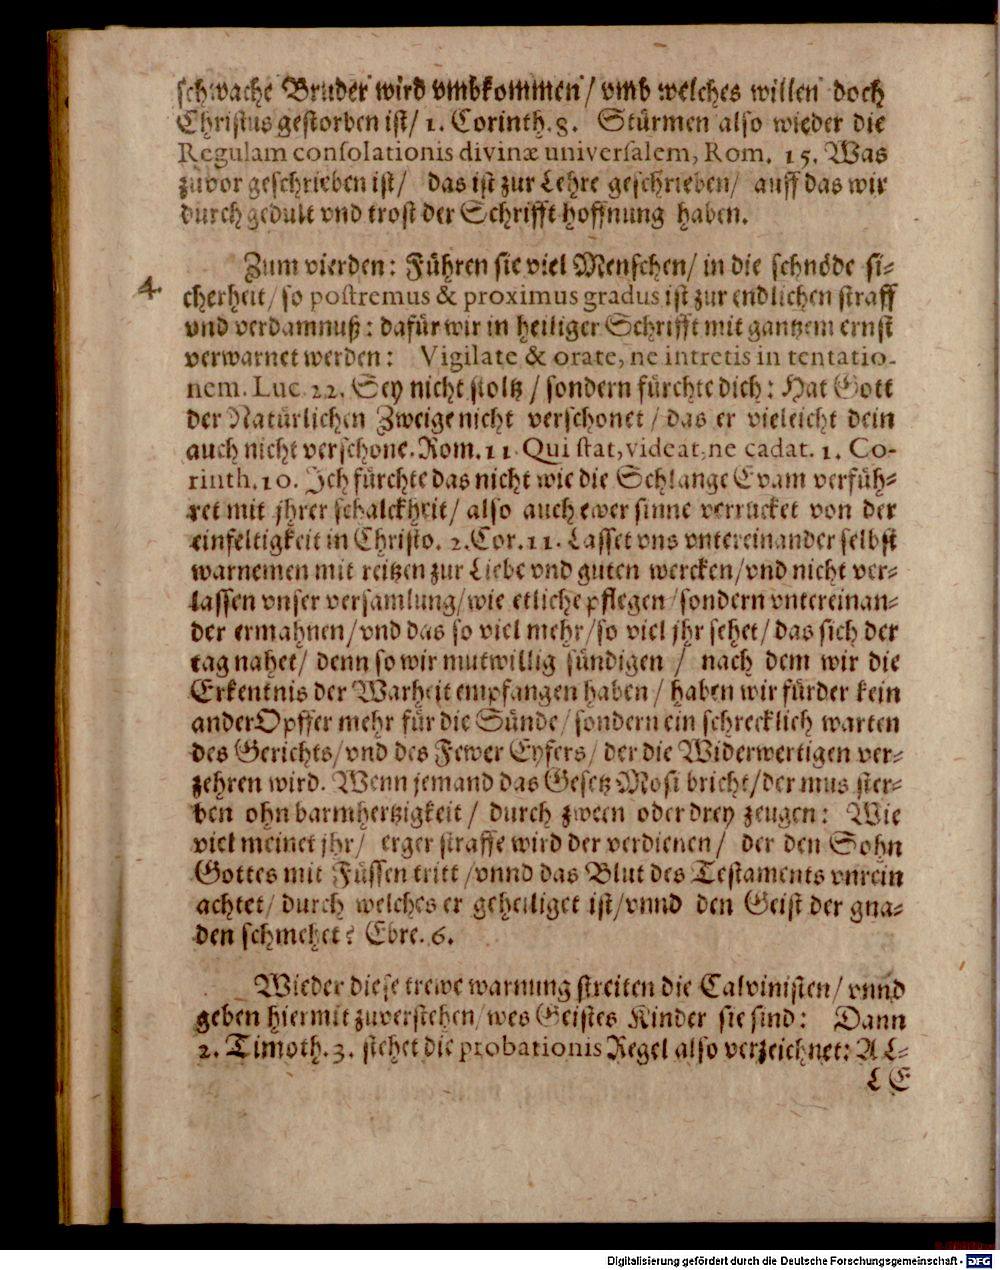 schwache Bruder wird vmbkommen / vmb welches willen doch
Christus gestorben ist / 1. Corinth. 8. Stürmen also wieder die
Regulam consolationis divinæ universalem, Rom. 15. Was
zuvor geschrieben ist / das ist zur Lehre geschrieben / auff das wir
durch gedult vnd trost der Schrifft hoffnung haben.
Zum vierden: Führen sie viel Menschen / in die schnöde si-
4.
cherheit / so postremus & proximus gradus ist zur endlichen straff
vnd verdamnuß: dafür wir in heiliger Schrifft mit gantzem ernst
verwarnet werden: Vigilate & orate, ne intretis in tentatio-
nem. Luc. 22. Sey nicht stoltz / sondern fürchte dich: Hat Gott
der Natürlichen Zweige nicht verschonet / das er vieleicht dein
auch nicht verschone. Rom. 11. Qui stat, videat, ne cadat. 1. Co-
rinth. 10. Ich fürchte das nicht wie die Schlange Evam verfüh-
ret mit jhrer schalckheit / also auch ewer sinne verrucket von der
einfeltigkeit in Christo. 2. Cor. 11. Lasset vns vntereinander selbst
warnemen mit reitzen zur Liebe vnd guten wercken / vnd nicht ver-
lassen vnser versamlung / wie etliche pflegen / sondern vntereinan-
der ermahnen / vnd das so viel mehr / so viel jhr sehet / das sich der
tag nahet / denn so wir mutwillig sündigen / nach dem wir die
Erkentnis der Warheit empfangen haben / haben wir fürder kein
ander Opffer mehr für die Sünde / sondern ein schrecklich warten
des Gerichts / vnd des Fewer Eyfers / der die Widerwertigen ver-
zehren wird. Wenn jemand das Gesetz Mosi bricht / der mus ster-
ben ohn barmhertzigkeit / durch zween oder drey zeugen: Wie
viel meinet jhr / erger straffe wird der verdienen / der den Sohn
Gottes mit Füssen tritt / vnnd das Blut des Testaments vnrein
achtet / durch welches er geheiliget ist / vnnd den Geist der gna-
den schmehet? Ebre. 6.
Wieder diese trewe warnung streiten die Calvinisten / vnnd
geben hiermit zuverstehen / wes Geistes Kinder sie sind: Dann
2. Timoth. 3. stehet die probationis Regel also verzeichnet: AL-
LE
Digitalisierung gefördert durch die Deutsche Forschungsgemeinschaft - DFG